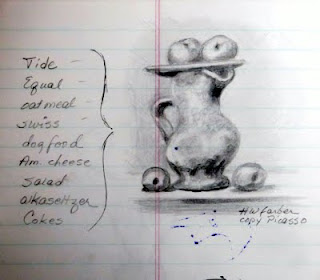 Tide -
Equal -
oatmeal -
swiss -
dogfood
Am. cheese
Salad
alkaseltzer
Cokes
HWfarber
copy Picasso